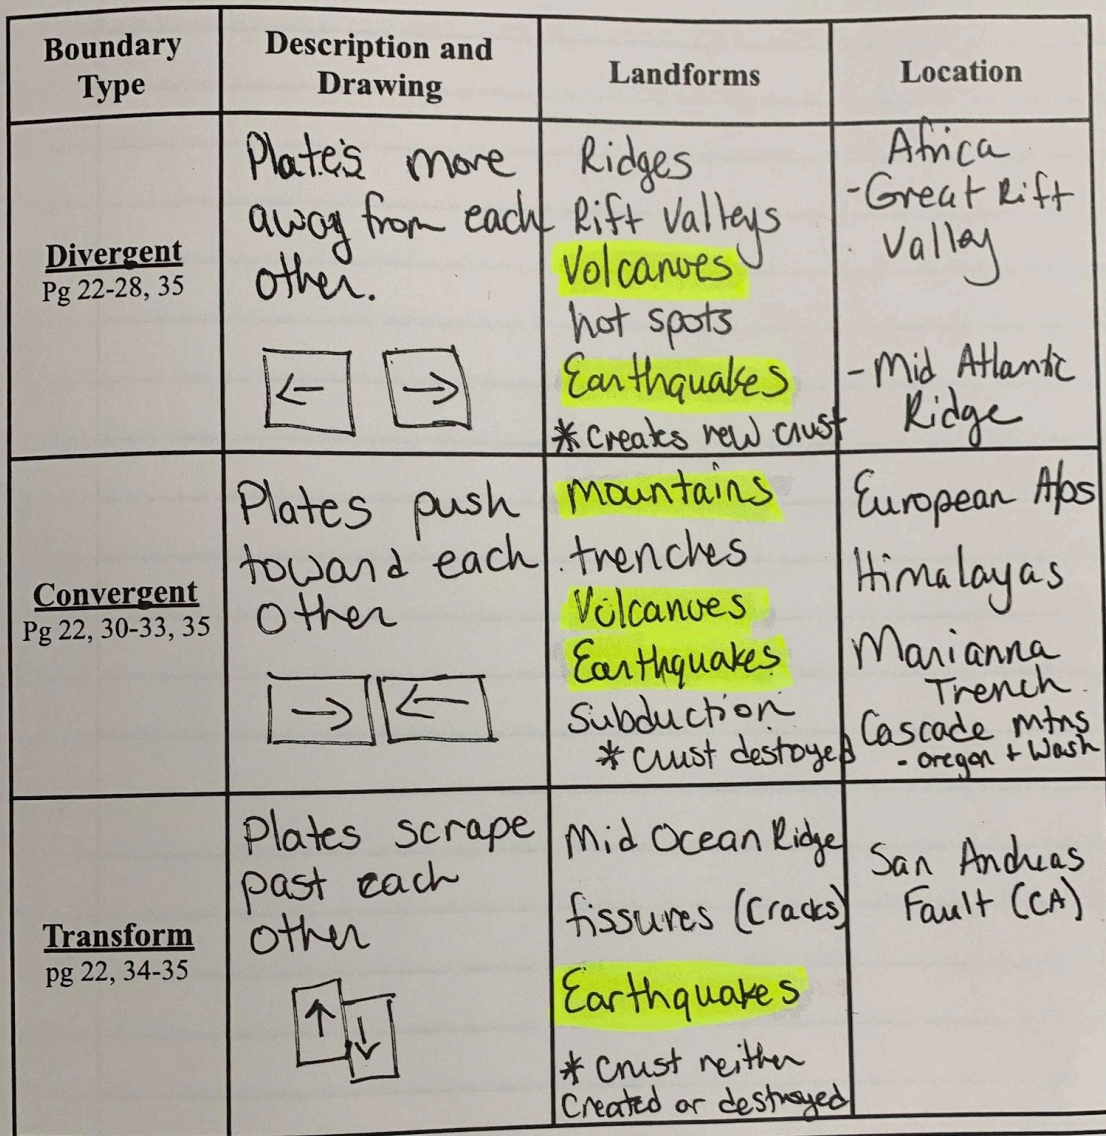 Boundary
Type
Description and
Drawing
Landforms
Location
Divergent
Pg 22-28, 35
Plate's move
away from each
other.
Ridges
Rift Valleys
Volcanoes
hot spots
Earthquakes
* Creates new crust
Africa
- Great Rift
Valley
- Mid Atlantic
Ridge
Convergent
Pg 22, 30-33, 35
Plates push
toward each
other
mountains
trenches
Volcanoes
Earthquakes
Subduction
* Crust destoyed
European Alps
Himalayas
Marianna
Trench
Cascade mtns
- oregon + Wash
Transform
pg 22, 34-35
Plates scrape
past each
other
Mid Ocean Ridge
fissures (Cracks)
Earthquakes
* Crust neither
Created or destroyed
San Andreas
Fault (CA)